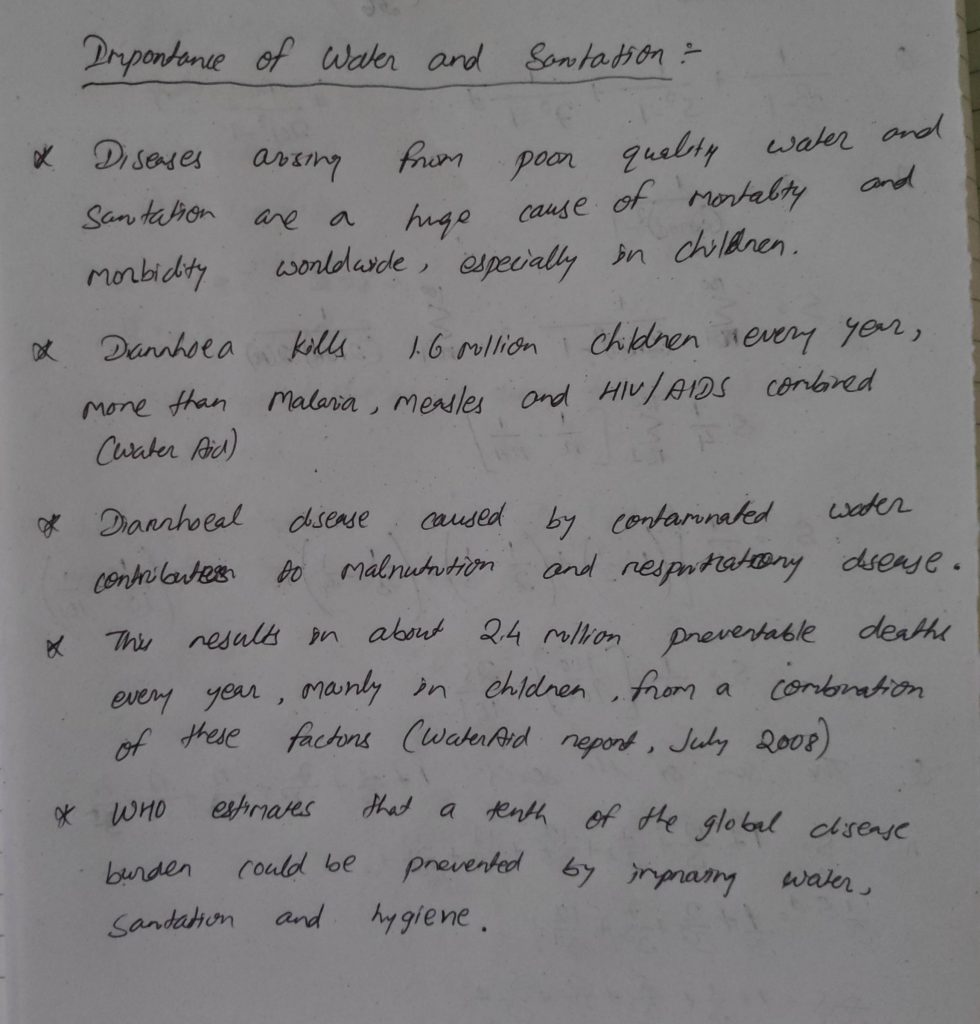 Importance of Water and Sanitation :-
* Diseases arising from poor quality water and
Sanitation are a huge cause of mortality and
morbidity worldwide, especially in children.
* Diarrhoea kills 1.6 million children every year,
more than Malaria, measles and HIV/AIDS combined
(Water Aid)
* Diarrhoeal disease caused by contaminated water
contributes to malnutrition and respiratory disease.
* This results in about 2.4 million preventable deaths
every year, mainly in children, from a combination
of these factors (WaterAid report, July 2008)
* WHO estimates that a tenth of the global disease
burden could be prevented by improving water,
Sanitation and hygiene.